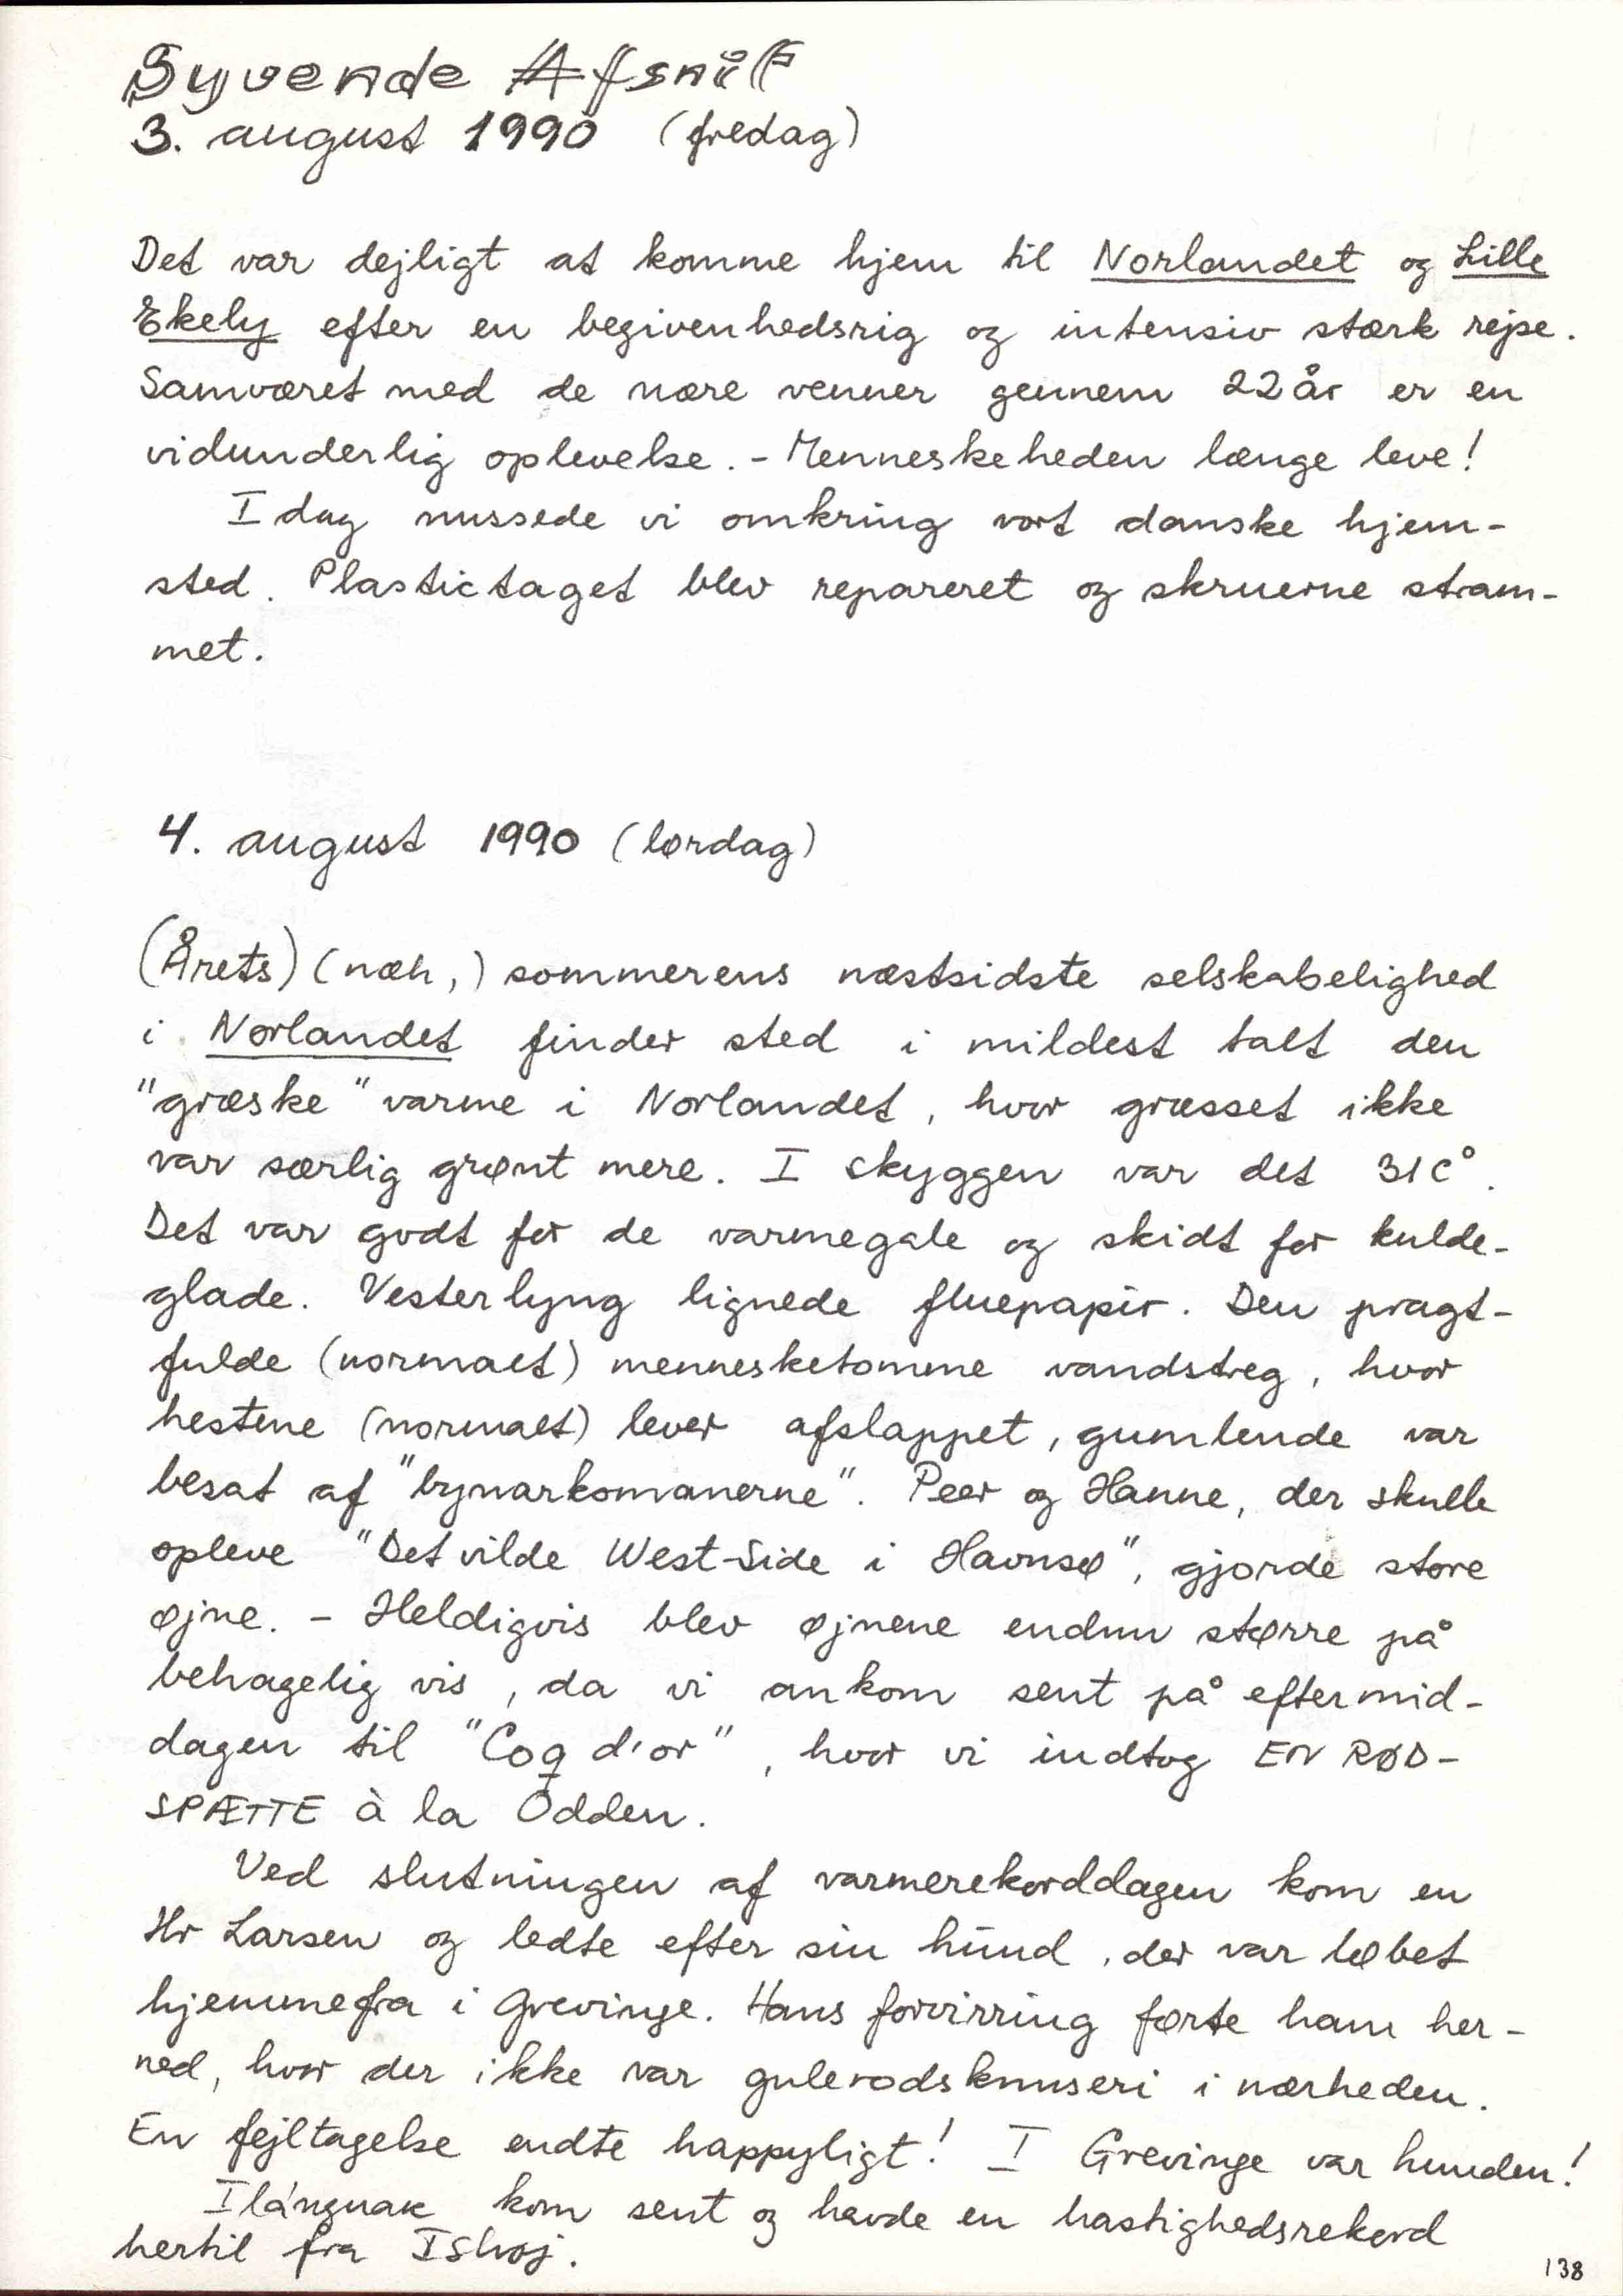 Syvende Afsnit
3. august 1990 (fredag)
Det var dejligt at komme hjem til Norlandet og Lille
Ekely efter en begivenhedsrig og intensiv stærk rejse.
Samværet med de nære venner gennem 22 år er en
vidunderlig oplevelse. - Menneskeheden længe leve!
I dag nussede vi omkring vort danske hjem-
sted. Plastictaget blev repareret og skruerne stram-
met.
4. august 1990 (lørdag)
(Årets) (næh,) sommerens næstsidste selskabelighed
i Norlandet finder sted i mildest talt den
"græske" varme i Norlandet, hvor græsset ikke
var særlig grønt mere. I skyggen var det 31 C°.
Det var godt for de varmegale og skidt for kulde-
glade. Vesterlyng lignede fluepapir. Den pragt-
fulde (normalt) mennesketomme vandstreg, hvor
hestene (normalt) lever afslappet, gumlende var
besat af "bynarkomanerne". Peer og Hanne, der skulle
opleve "Det vilde West-Side i Havnsø", gjorde store
øjne. - Heldigvis blev øjnene endnu større på
behagelig vis, da vi ankom sent på eftermid-
dagen til "Coq d'or", hvor vi indtog EN RØD-
SPÆTTE à la Odden.
Ved slutningen af varmerekorddagen kom en
Hr Larsen og ledte efter sin hund, der var løbet
hjemmefra i Grevinge. Hans forvirring førte ham her-
ned, hvor der ikke var gulerodsknuseri i nærheden.
En fejltagelse endte happyligt! I Grevinge var hunden!
Ilánguak kom sent og havde en hastighedsrekord
hertil fra Ishøj.
138